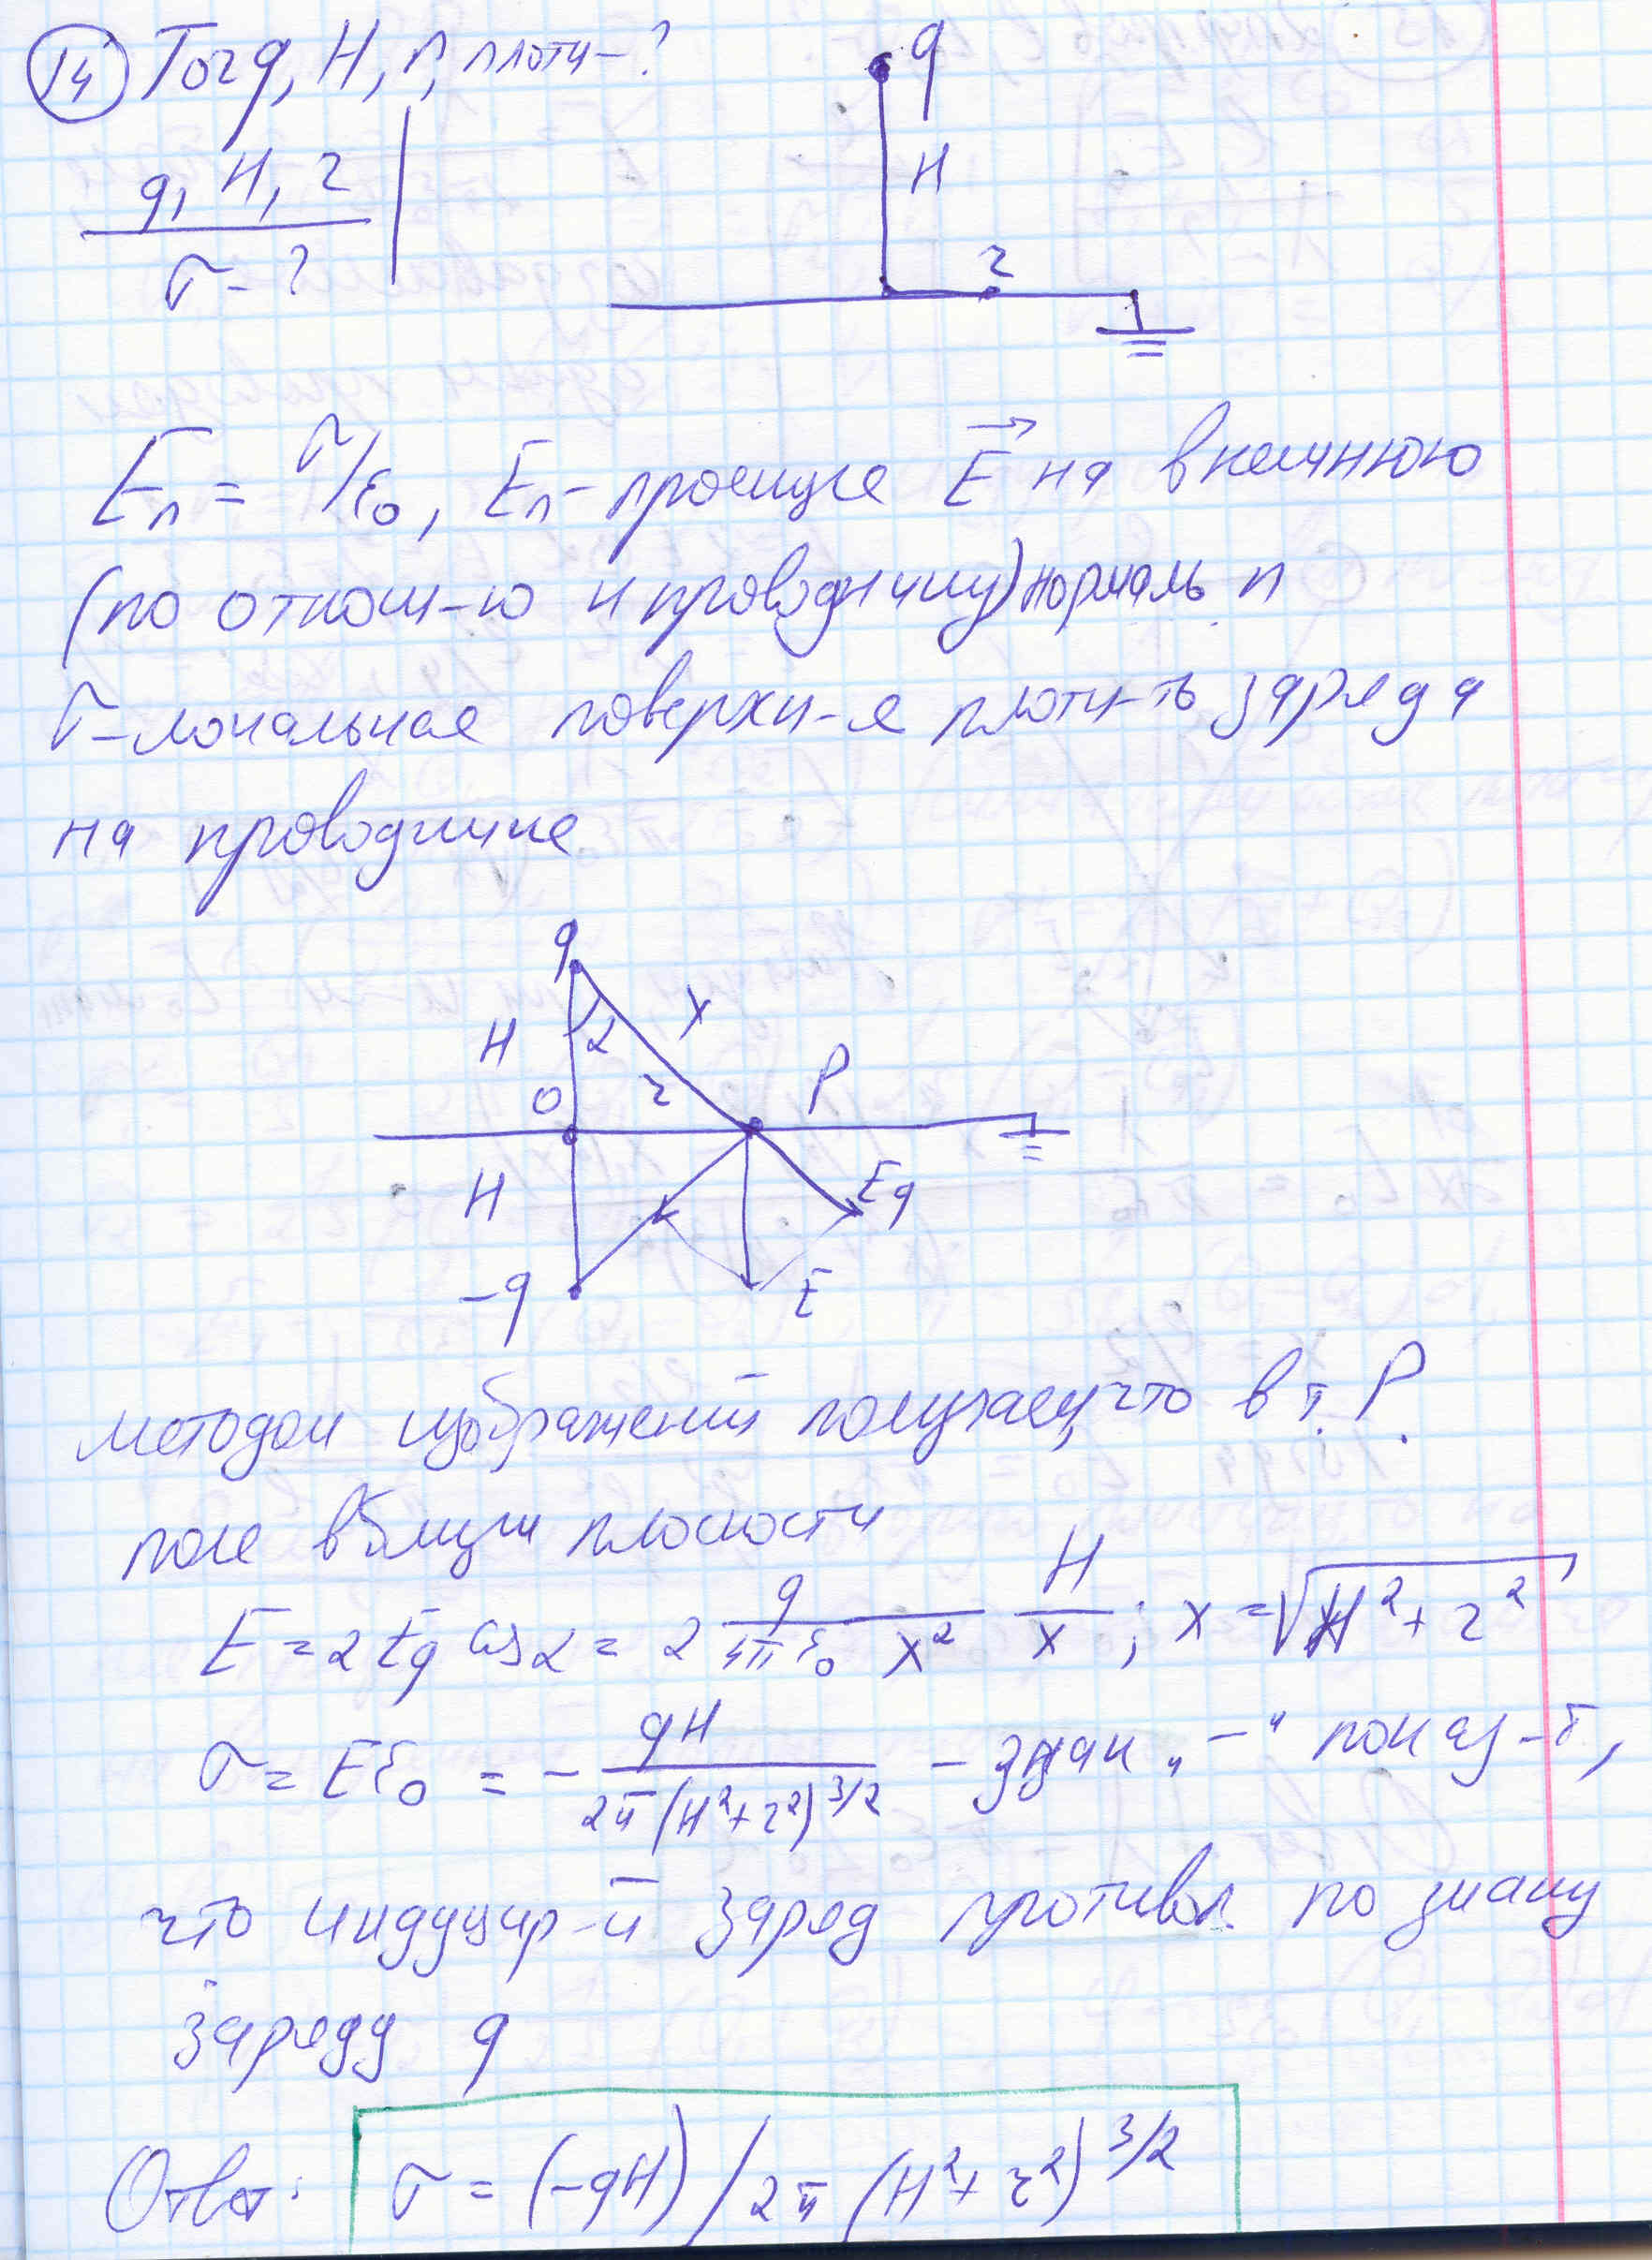 14 Точ q, H, r, плотн-?
q, H, r
σ - ?
q
H
r
En = σ/ε₀, En - проекция E⃗ на внешнюю
(по отнош-ю к проводнику) нормаль n
σ - локальная поверхн-я плотн-ть заряда
на проводнике
q
H α x
O r P
H Eq
-q E
методом изображений получаем, что в т. P
поле вблизи плоскости
E = 2Eq cos α = 2 q/(4πε₀ x²) H/x ; x = √(H² + r²)
σ = Eε₀ = - qH/(2π(H²+r²)^3/2) - знак „-" показ-т,
что индуцир-й заряд противоп. по знаку
заряду q
Ответ: σ = (-qH)/2π (H² + r²)^3/2